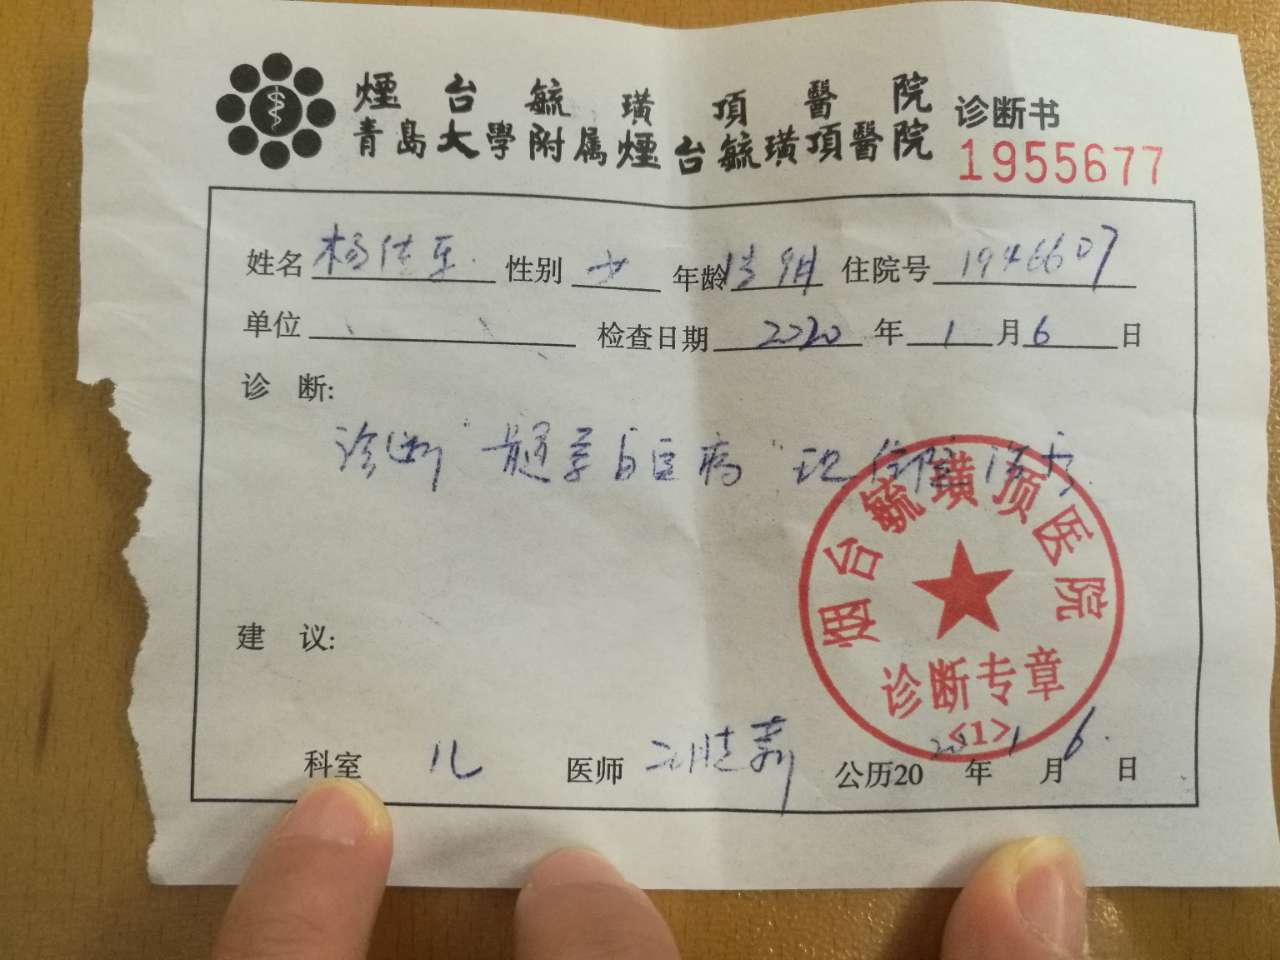 煙台毓璜頂醫院
青島大學附属煙台毓璜頂醫院
诊断书
1955677
姓名 杨佳 性别 女 年龄 住院号 1946607
单位 检查日期 2020 年 1 月 6 日
诊断:
诊断"髓 病"现住院治疗.
建议:
烟台毓璜顶医院
诊断专章
<1>
科室 儿 医师 公历20 20 年 1 月 6 日